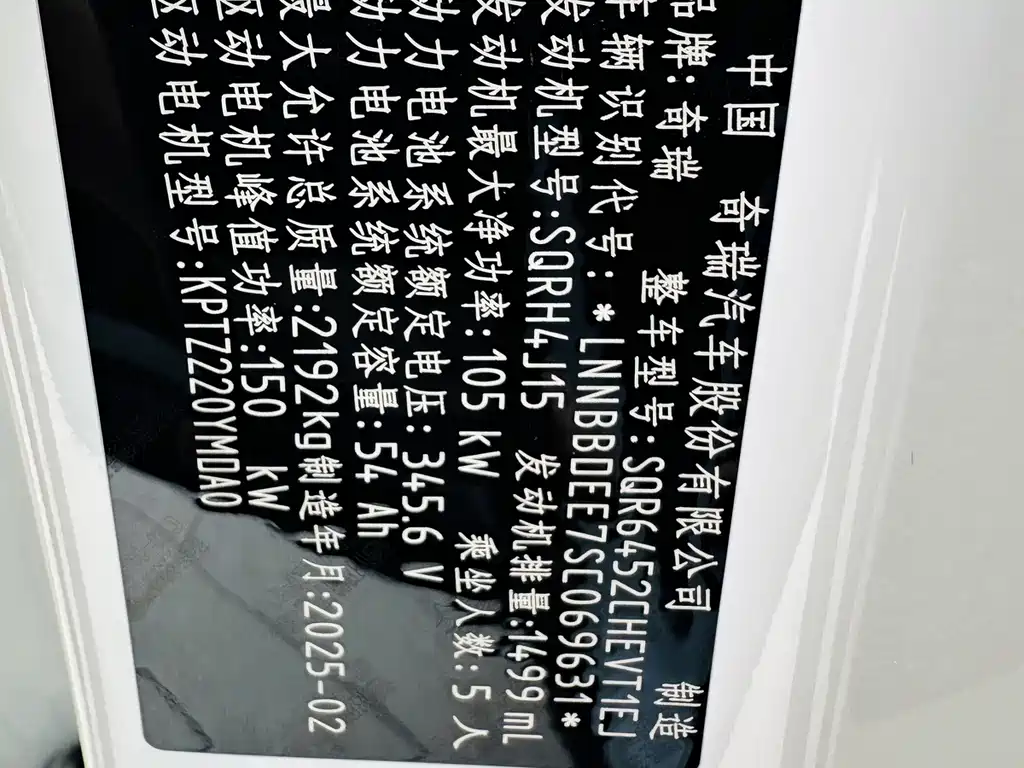 中国 奇瑞汽车股份有限公司 制造
品牌:奇瑞 整车型号:SQR6452CHEVT1EJ
车辆识别代号:*LNNBBDEE7SE069631*
发动机型号:SQRH4J15 发动机排量:1499ml
发动机最大净功率:105 kW 乘坐人数:5人
动力电池系统额定电压:345.6 V
动力电池系统额定容量:54 Ah
最大允许总质量:2192kg制造年月:2025-02
驱动电机峰值功率:150 kW
驱动电机型号:KPTZ220YMDA0